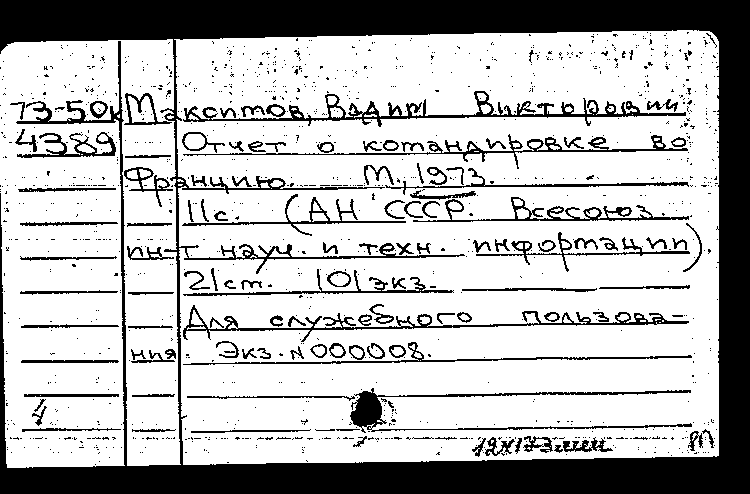 73-50к Максимов, Вадим Викторович
4389 Отчет о командировке во
Францию. М., 1973.
11с. (АН СССР. Всесоюз.
ин-т науч. и техн. информации).
21см. 101экз.
Для служебного пользова-
ния. Экз. №000008.
4